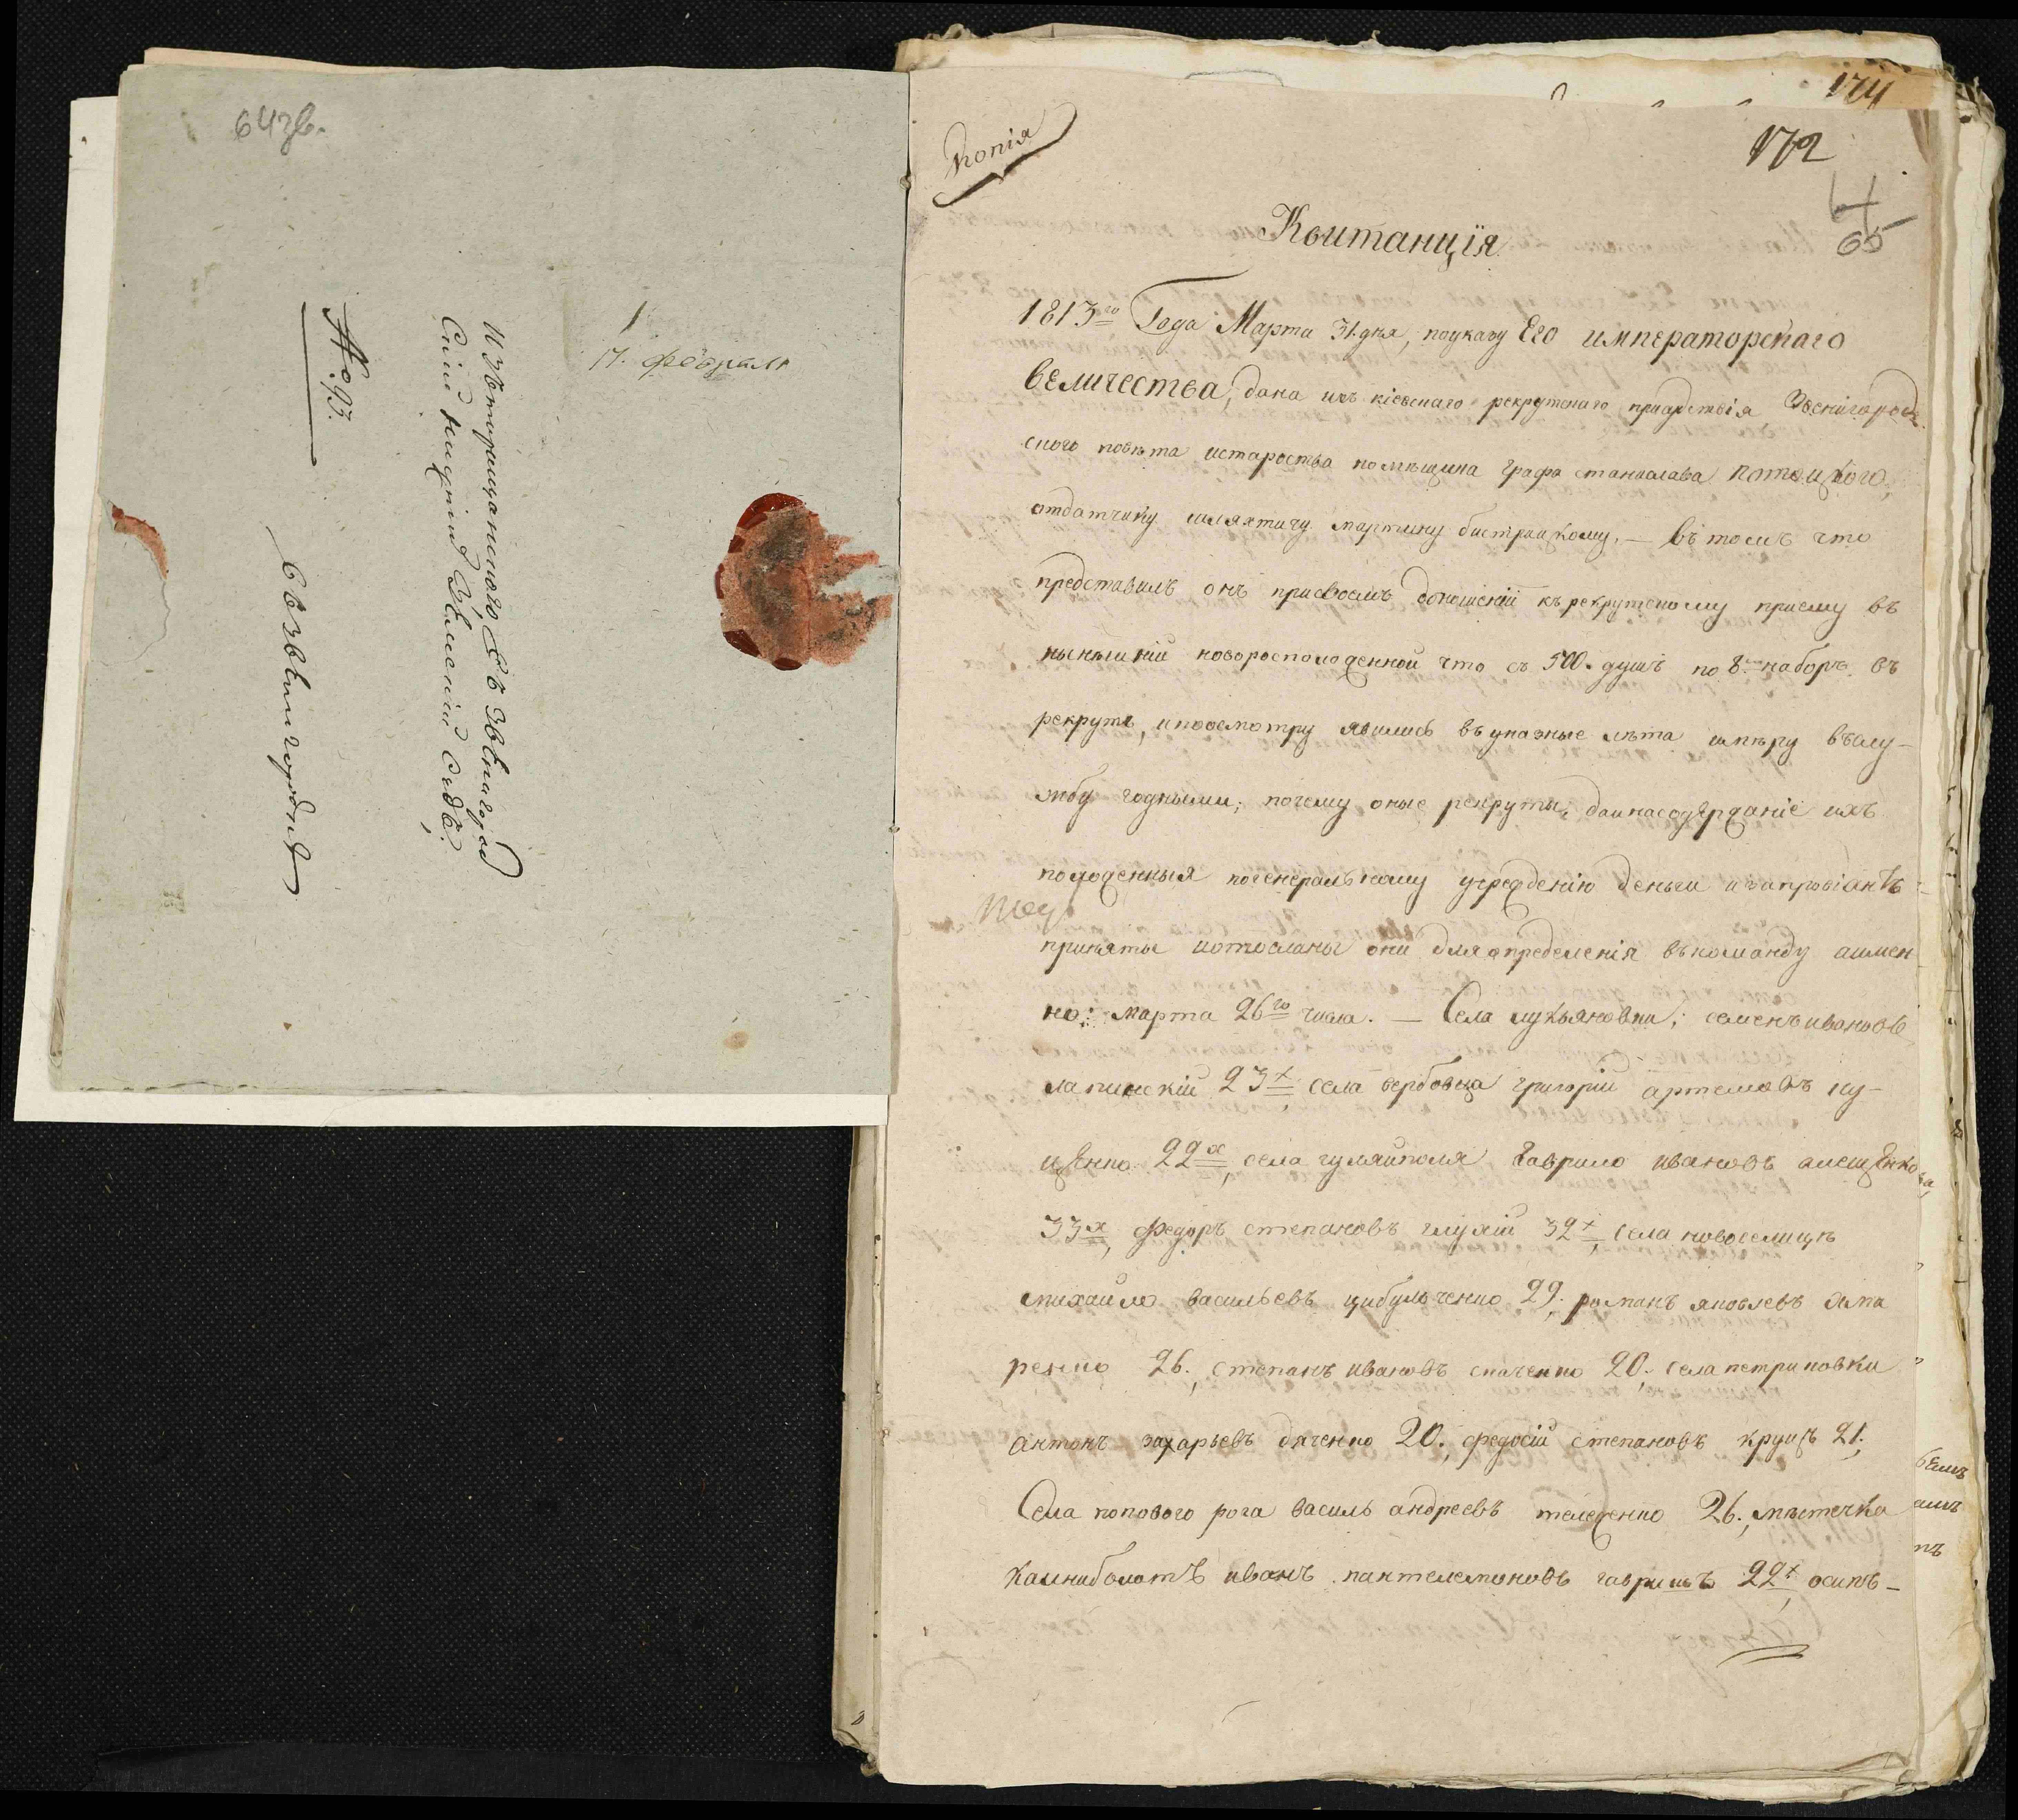 64зв.
17. февраля
Изъ тарищанского, въ звенигород
Скій нижній Земскій судъ.
№ 93.
въ звенигородкѣ
174
172
65
Копія
Квитанція
1813го Года Марта 31. дня, поуказу Его императорскаго
величества, дана изъ кіевскаго рекрутскаго присудствія Звенигород
ского повѣта истароства помѣщика графа станислава потоцкого,
отдатчику шляхтичу мартину бистрицкому, — въ томъ что
представилъ онъ присвоемъ доношеніи къ рекрутскому приему въ
нынѣшній новоросположенной что съ 500. душъ по 8. наборъ въ
рекрутъ, ипоосмотру явились въ указные лѣта имѣру въслу-
жбу годными; почему оные рекруты, данасодержаніе ихъ
положенныя погенеральному учрежденію деньги изапровіантъ
приняты иотосланы они для определенія въкоманду аимен
но: марта 26го числа. — Села лукьяновки; семенъ ивановъ
лапинскій 23х, села вербовца григорій артемовъ ку-
ценко 22х, села гуляйполя гаврило ивановъ алещенко
33х, федоръ степановъ глухій 32х, села новоселицѣ
михайло васильевъ цибульченко 29. романъ яковлевъ яма
ренко 26., степанъ ивановъ скаченко 20., села петриковки
антонъ захарьевъ дяченко 20., федосій степановъ круцъ 21.,
Села попового рога василь андреевъележенко 26., мѣстечка
калниболотъ иванъ пантелемоновъ гавришъ 22х, осипъ-